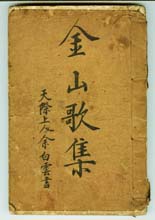 金山歌集
天際上人余白雲書